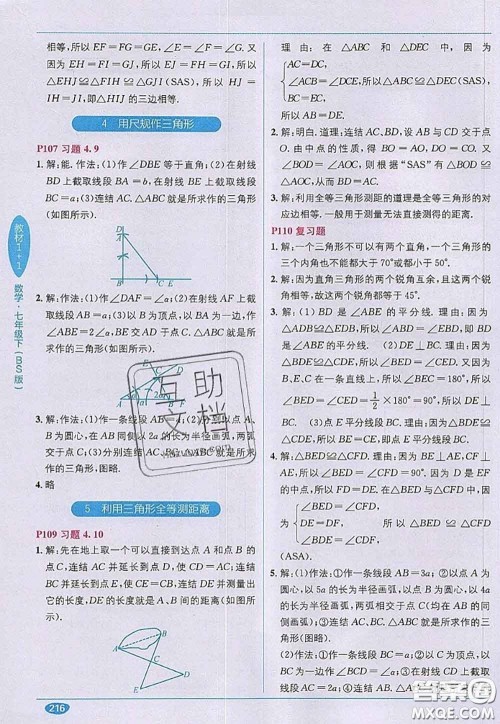 相等,所以EF=FG=GE,∠E=∠F=∠G.又
因为EH=FI=GJ,所以EJ=FH=GI,所以
△EHJ≌△FIH≌△GJI(SAS),所以HJ=
IH=IJ,即△HIJ的三边相等.
4 用尺规作三角形
P107 习题 4.9
1.解:能.作法:(1)作∠DBE等于直角;(2)在射线
BD上截取线段BA=b,在射线BE上截取线段
BC=a;(3)连结AC.△ABC就是所求作的三角形
(如图所示).
D
A
B
C E
2.解:作法:(1)作∠DAF=∠α;(2)在射线AF上截
取线段AB=a;(3)以B为顶点,以BA为一边,作
∠ABE=2∠α,BE交AD于点C.△ABC就是所
求作的三角形(如图所示).
3.解:作法:(1)作一条线段AB=a;(2)分别以点A、
B为圆心,在AB同侧以2a的长为半径画弧,两弧
交于点C;(3)分别连结AC、BC.△ABC就是所求
作的三角形,图略.
4.略
5 利用三角形全等测距离
P109 习题 4.10
1.解:先在地上取一个可以直接到达点A和点B的
点C,连结AC并延长到点D,使CD=AC;连结
BC并延长到点E,使CE=CB,连结DE并测量出
它的长度,DE的长度就是A、B间的距离(如图所
示).
B
A
C
D
E
教材1+1
数学·七年级下(BS版)
216
理由:在△ABC和△DEC中,因为
AC=DC,
∠ACB=∠DCE,所以△ABC≌△DEC(SAS),
BC=EC,
所以AB=DE.
2.解:明白.道理:连结AC、BD,设AC与BD交于点
O.由点O是AC、BD的中点,可知OA=OC,OB=
OD,又∠BOA=∠DOC,则根据“SAS”有△AOB≌
△COD,故AB=CD.
3.解:利用全等三角形测距的道理是全等三角形的对
应边相等.一般用于测量无法直接测得的距离.
P110 复习题
1.解:一个三角形不可以有两个直角,一个三角形的
三个内角也不能都大于70°或都小于50°.
2.解:因为直角三角形的两个锐角互余,且这两个锐
角相等,故这两个锐角都等于45°.
3.解:(1)BE是∠ABD的平分线.理由:因为
△ADB≌△EDB,所以∠ABD=∠EBD,所以BE
是∠ABD的平分线.(2)DE⊥BC.理由:因为
△BDE≌△CDE,所以∠BED=∠CED.因为B、
E、C在一条直线上,所以∠BED+∠CED=180°,
所以∠BED=∠CED=1/2×180°=90°,所以DE⊥
BC.(3)点E平分线段BC.理由:因为△BDE≌
△CDE,所以BE=CE,所以点E平分线段BC.
4.解:△BED≌△CFD.理由:因为∠BED=
∠CFD=90°,所以∠BED=∠CFD.因为D是EF
的中点,所以ED=FD.在△BED和△CFD中,
因为
∠BED=∠CFD,
ED=FD,
∠BDE=∠CDF,
所以△BED≌△CFD
(ASA).
5.解:(1)作法:①作一条线段AB=3a;②以点A为
圆心,以5a的长为半径画弧,以点B为圆心,以4a
的长为半径画弧,两弧相交于点C(弧均在AB的同
侧画弧);③连结AC、BC.△ABC就是所求作的三
角形(图略).
(2)作法:①作一条线段AB=3a;②以A为顶点,